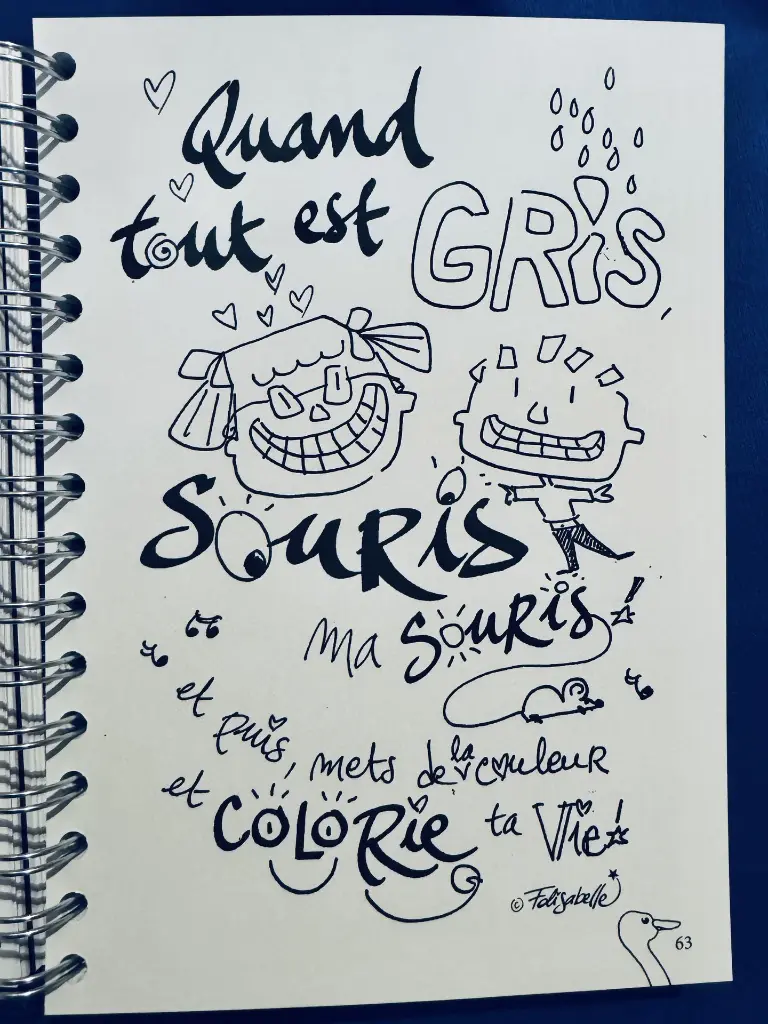 Quand
tout est GRiS,
SOURIS
ma SOURIS!
et
puis, mets de la couleur
et COLORie ta Vie!
© Folisabelle
63